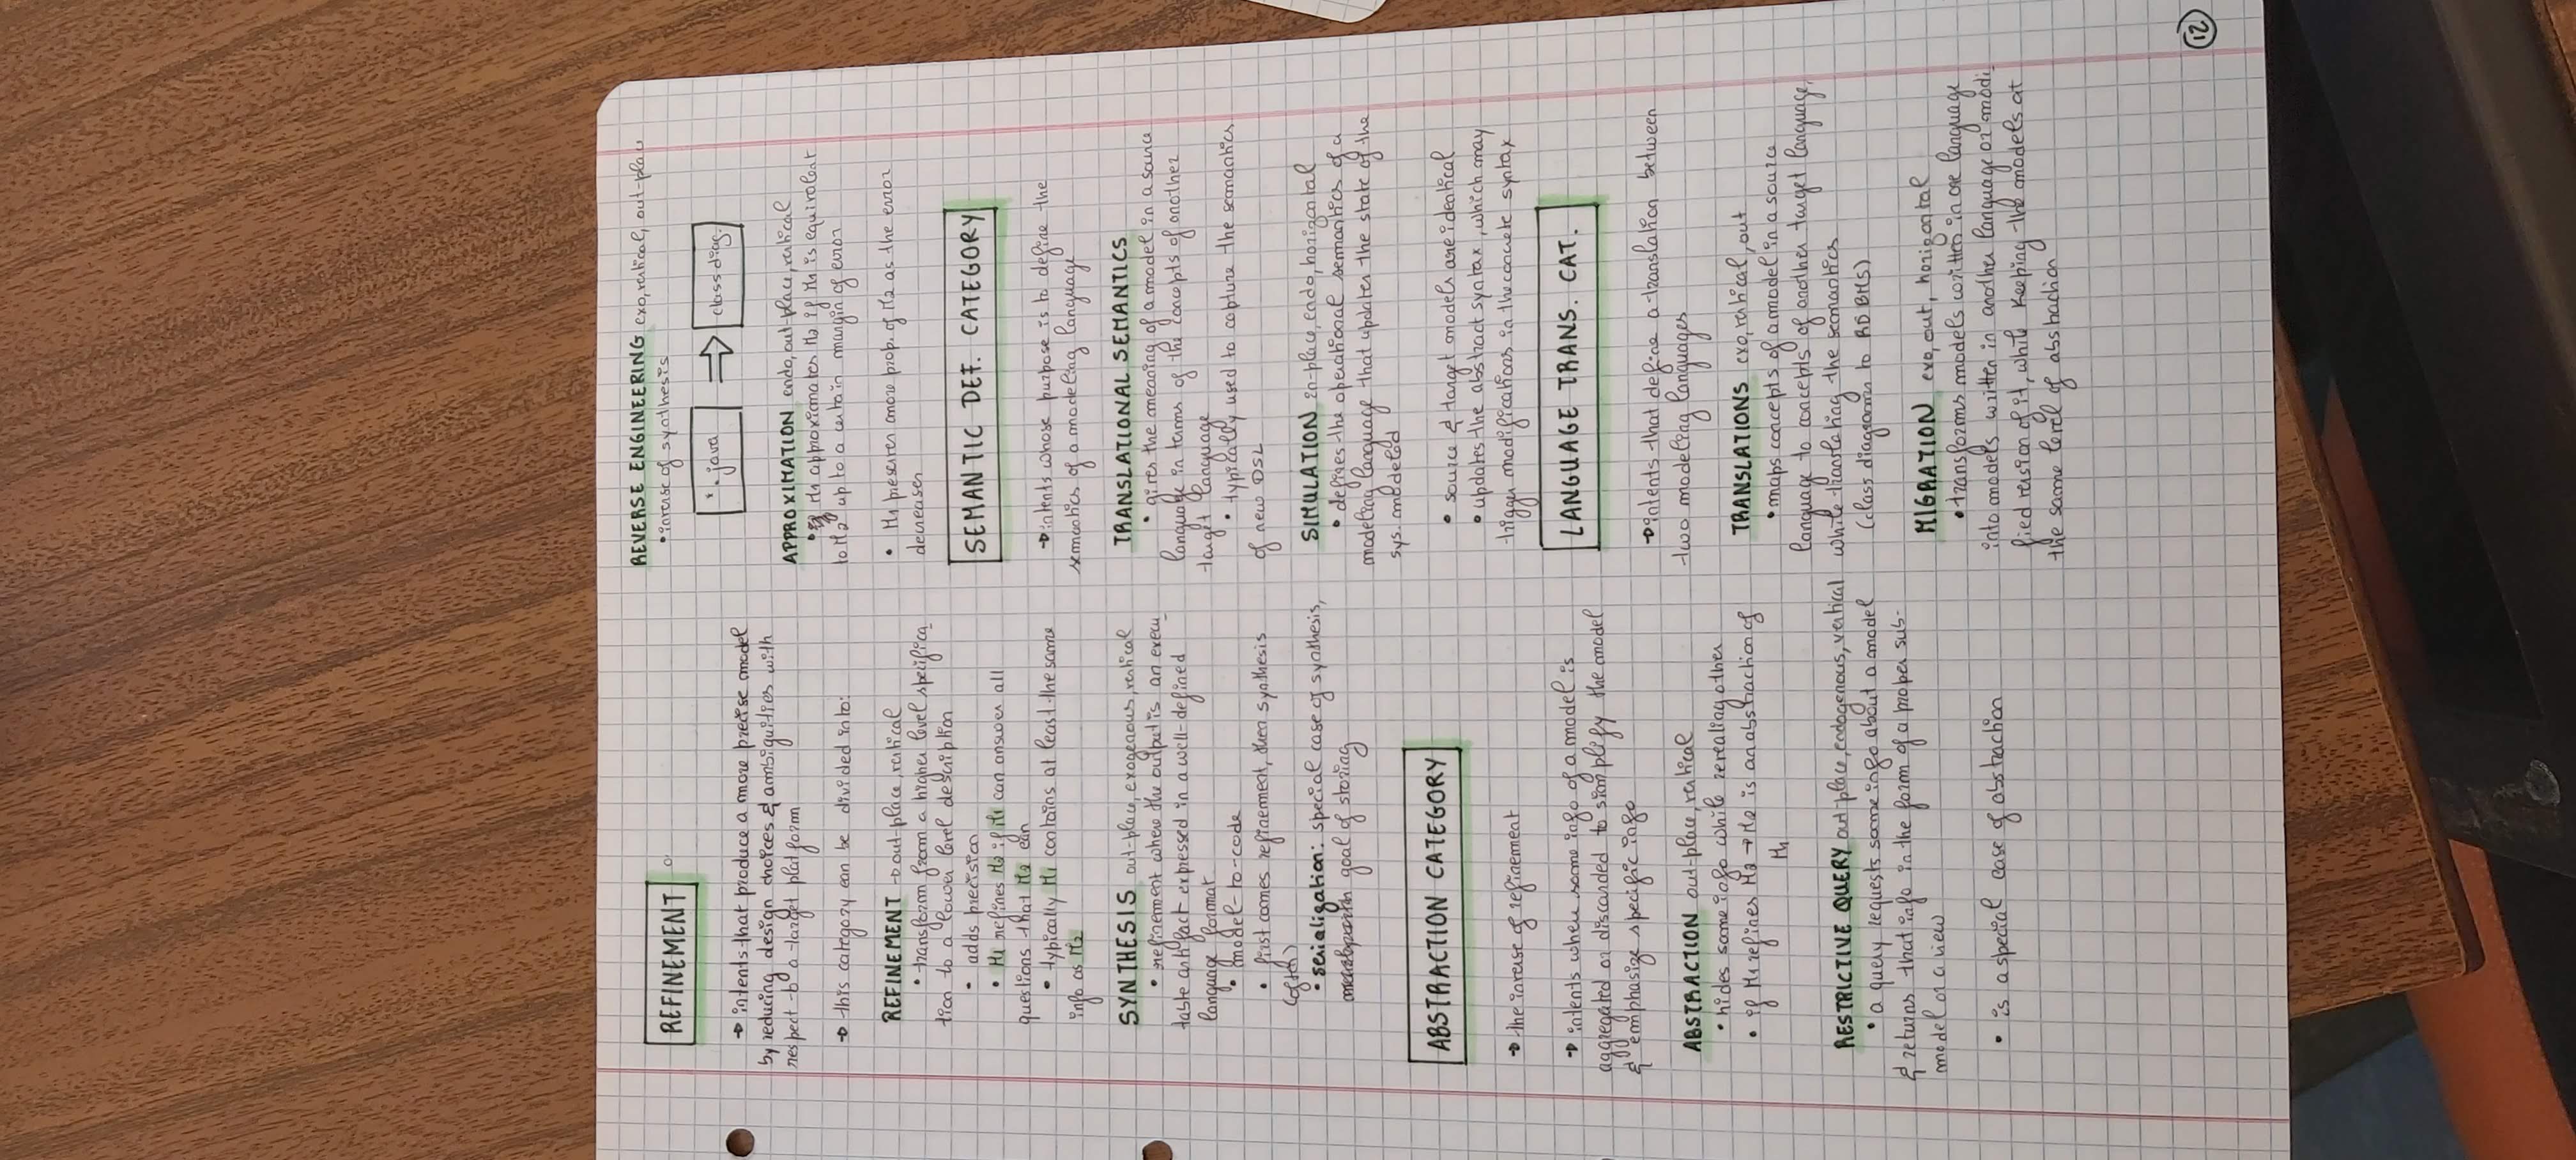 REFINEMENT
→ intents that produce a more precise model
by reducing design choices & ambiguities with
respect to a target platform
→ this category can be divided into:
REFINEMENT → out-place, vertical
• transform from a higher level specifica-
tion to a lower level description
• adds precision
• M1 refines M2 if M1 can answer all
questions that M2 can
• typically M1 contains at least the same
info as M2
SYNTHESIS out-place, exogenous, vertical
• refinement where the output is an execu-
table artifact expressed in a well-defined
language format
• model-to-code
• first comes refinement, then synthesis
(often)
• serialization: special case of synthesis,
goal of storing
ABSTRACTION CATEGORY
→ the inverse of refinement
→ intents where some info of a model is
aggregated or discarded to simplify the model
& emphasize specific info
ABSTRACTION out-place, vertical
• hides some info while revealing other
• if M1 refines M2 → M2 is an abstraction of
M1
RESTRICTIVE QUERY out-place, endogenous, vertical
• a query requests some info about a model
& returns that info in the form of a proper sub-
model or a view
• is a special case of abstraction
REVERSE ENGINEERING exo, vertical, out-place
• inverse of synthesis
*.java ⇒ class diag.
APPROXIMATION endo, out-place, vertical
• M1 approximates M2 if M1 is equivalent
to M2 up to a certain margin of error
• M1 preserves more prop. of M2 as the error
decreases
SEMANTIC DEF. CATEGORY
→ intents whose purpose is to define the
semantics of a modeling language
TRANSLATIONAL SEMANTICS
• gives the meaning of a model in a source
language in terms of the concepts of another
target language
• typically used to capture the semantics
of new DSL
SIMULATION in-place, endo, horizontal
• defines the operational semantics of a
modeling language that updates the state of the
sys. modeled
• source & target models are identical
• updates the abstract syntax, which may
trigger modifications in the concrete syntax
LANGUAGE TRANS. CAT.
→ intents that define a translation between
two modeling languages
TRANSLATIONS exo, vertical, out
• maps concepts of a model in a source
language to concepts of another target language,
while translating the semantics
(class diagrams to RDBMS)
MIGRATION exo, out, horizontal
• transforms models written in one language
into models written in another language or modi-
fied version of it, while keeping the models at
the same level of abstraction
12